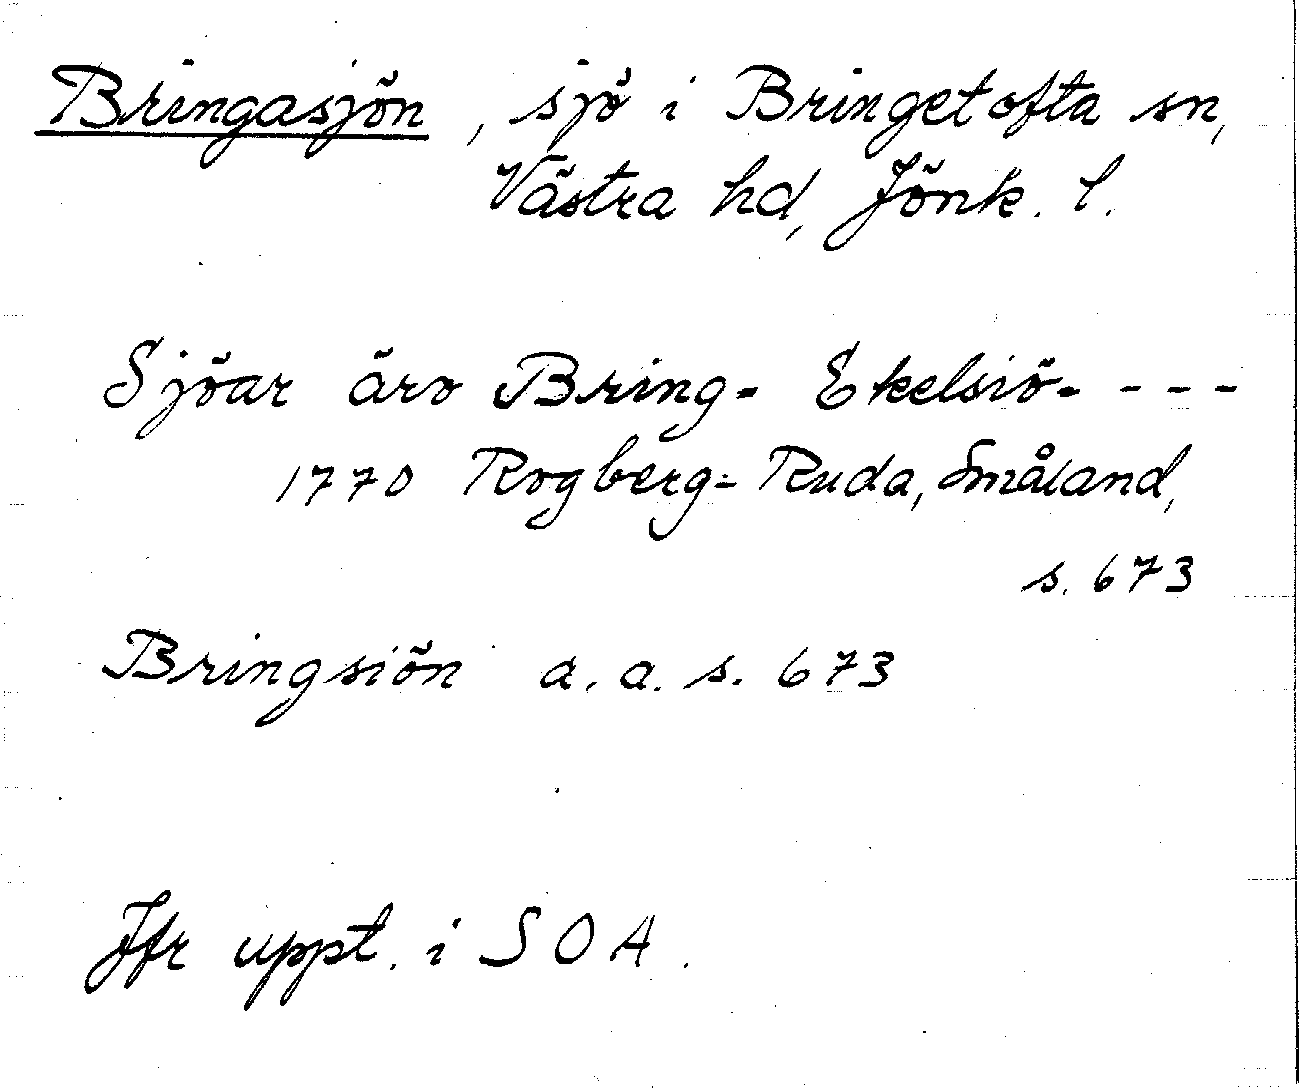 Bringasjön, sjö i Bringetofta sn,
Västra hd, Jönk. l.
Sjöar äro Bring- Ekelsiö- - - -
1770 Rogberg-Ruda, Småland,
s. 673
Bringsiön a. a. s. 673
Jfr uppt. i SOA.